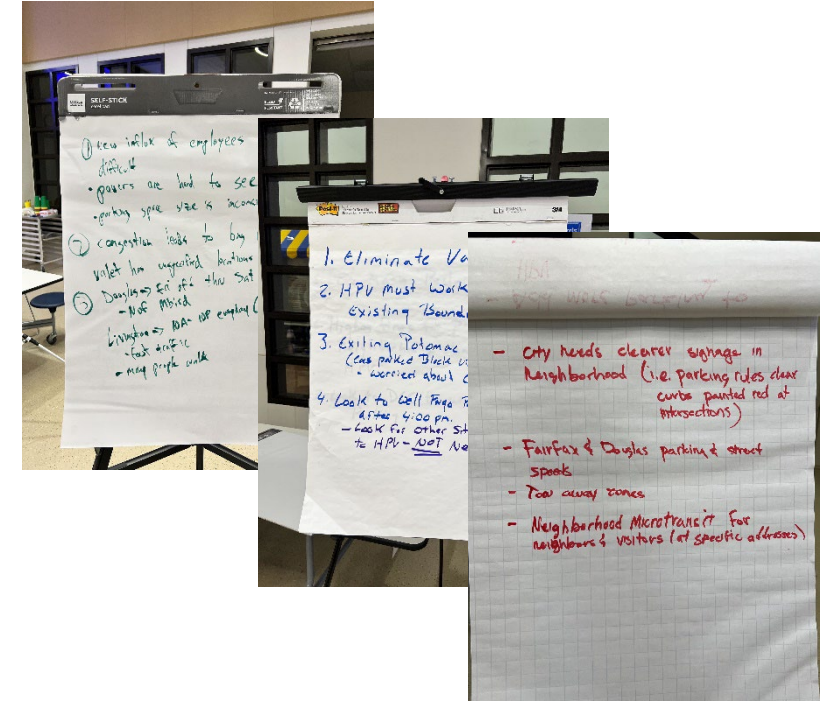 SELF-STICK
① New influx of employees
difficult
• pavers are hard to see
• parking space size is incon
② Congestion leads to bag
Valet has unspecified locations
③ Douglas → Fri off thru Sat
- NoF Mbird
Livingston → employ
- fast traffic
- many people walk
Post-it
3M
1. Eliminate Va
2. HPV Must Work
Existing Bound
3. Exiting Potomac
(cars parked Block v
- worried about c
4. Look to Well Fargo
after 4:00 pm.
- Look for other Sit
to HPV - NOT Ne
- City needs clearer signage in
Neighborhood (i.e. parking rules clear
curbs painted red at
intersections)
- Fairfax & Douglas parking & street
speeds
- Tow away zones
- Neighborhood Microtransit for
neighbors & visitors (at specific addresses)